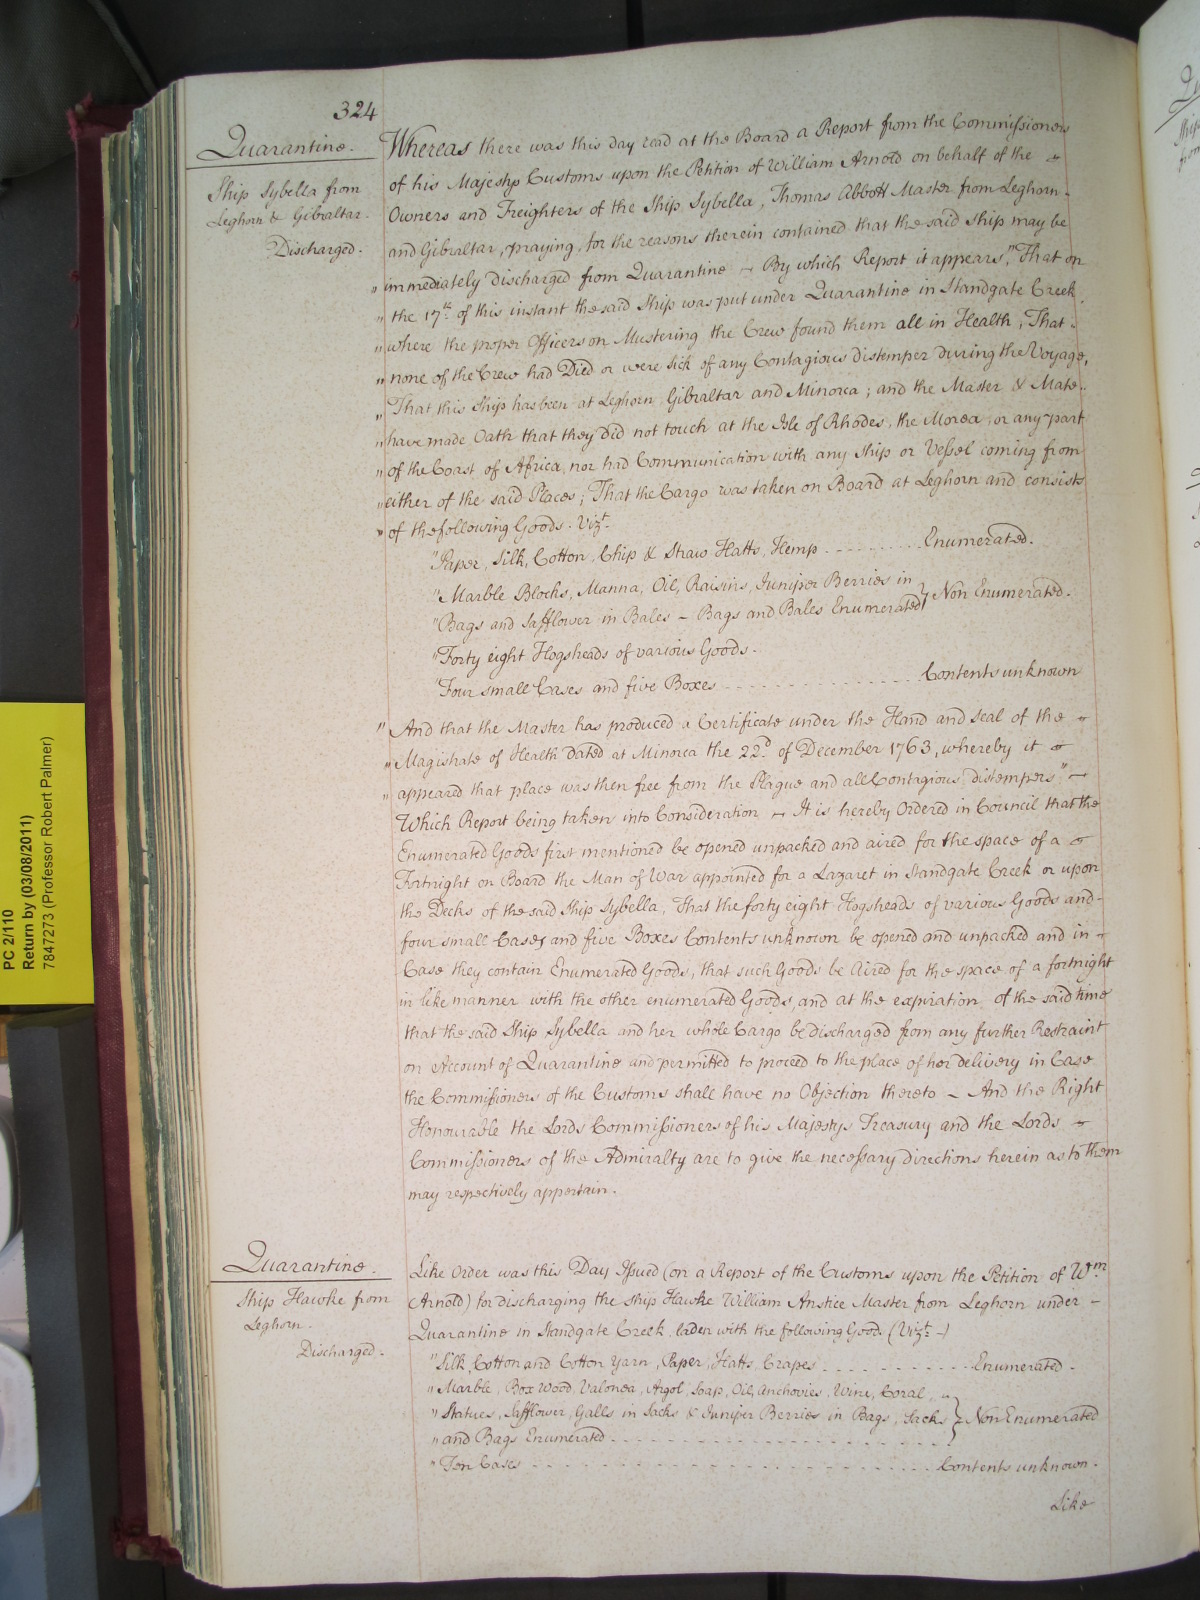 324
Quarantine.
Ship Sybella from
Leghorn & Gibraltar.
Discharged.
Whereas there was this day read at the Board a Report from the Commissioners
of his Majestys Customs upon the Petition of William Arnold on behalf of the
Owners and Freighters of the Ship Sybella, Thomas Abbott Master from Leghorn
and Gibraltar, praying, for the reasons therein contained that the said Ship may be
"immediately discharged from Quarantine – By which Report it appears, "That on
"the 17th of this instant the said Ship was put under Quarantine in Standgate Creek
"where the proper Officers on Mustering the Crew found them all in Health, That
"none of the Crew had Died or were sick of any Contagious distemper during the Voyage,
"That this Ship has been at Leghorn, Gibraltar and Minorca; and the Master & Mate
"have made Oath that they did not touch at the Isle of Rhodes, the Morea, or any part
"of the Coast of Africa, nor had Communication with any Ship or Vessel coming from
"either of the said Places; That the Cargo was taken on Board at Leghorn and consists
"of the following Goods. Vizt.
"Paper, Silk, Cotton, Chip & Straw Hatts, Hemp .......... Enumerated.
"Marble Blocks, Manna, Oil, Raisins, Juniper Berries in
"Bags and Safflower in Bales – Bags and Bales Enumerated } Non Enumerated.
"Forty eight Hogsheads of various Goods.
"Four small Cases and five Boxes .............. Contents unknown
"And that the Master has produced a Certificate under the Hand and Seal of the
"Magistrate of Health dated at Minorca the 22d. of December 1763, whereby it
"appeared that place was then free from the Plague and all Contagious distempers" –
Which Report being taken into Consideration – It is hereby Ordered in Council that the
Enumerated Goods first mentioned be opened unpacked and aired for the space of a
Fortnight on Board the Man of War appointed for a Lazaret in Standgate Creek or upon
the Decks of the said Ship Sybella, That the forty eight Hogsheads of various Goods and
four small Cases and five Boxes Contents unknown be opened and unpacked and in
Case they contain Enumerated Goods, that such Goods be Aired for the space of a fortnight
in like manner with the other enumerated Goods, and at the expiration of the said time
that the said Ship Sybella and her whole Cargo be discharged from any further Restraint
on Account of Quarantine and permitted to proceed to the place of her delivery in Case
the Commissioners of the Customs shall have no Objection thereto – And the Right
Honourable the Lords Commissioners of his Majestys Treasury and the Lords
Commissioners of the Admiralty are to give the necessary directions herein as to them
may respectively appertain.
Quarantine.
Ship Hawke from
Leghorn.
Discharged.
Like Order was this Day Issued (on a Report of the Customs upon the Petition of Wm
Arnold) for discharging the ship Hawke William Anstice Master from Leghorn under
Quarantine in Standgate Creek, laden with the following Goods (Vizt.)
"Silk, Cotton and Cotton Yarn, Paper, Hatts, Crapes .......... Enumerated.
"Marble, Box Wood, Valonea, Argol, Soap, Oil, Anchovies, Wine, Coral,
"Statues, Safflower, Galls in Sacks & Juniper Berries in Bags, Sacks } Non Enumerated
"and Bags Enumerated ..........
"Ten Cases .......... Contents unknown.
Like
PC 2/110
Return by (03/08/2011)
7847273 (Professor Robert Palmer)